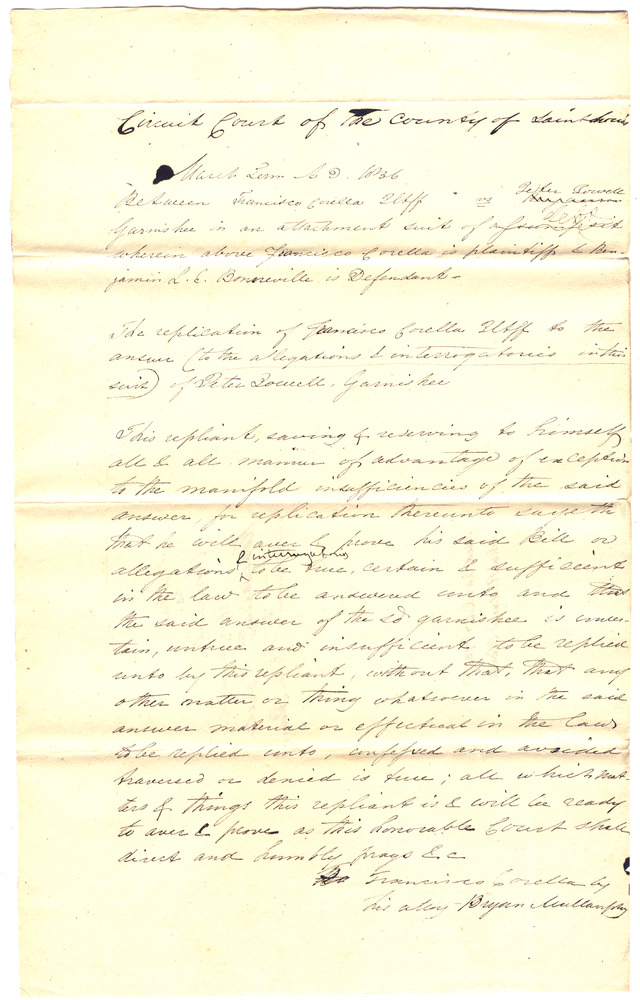 Circuit Court of the County of Saint Louis
March Term A D 1836
Peter Powell
Between Francisco Corella Pltff vs
Garnishee in an attachment suit of
wherein above Francisco Corella is plaintiff & Ben-
jamin L. E. Bonneville is Defendant-
The replication of Francisco Corella Pltff to the
answer (to the allegations & interrogatories in this
suit) of Peter Powell, Garnishee
This repliant, saving & reserving to himself
all & all manner of advantage of exception
to the manifold insufficiencies of the said
answer for replication thereunto saith
that he will aver & prove his said Bill or
& interrogatories
allegations to be true, certain & sufficient
in the law to be answered unto and that
the said answer of the sd garnishee is uncer-
tain, untrue and insufficient to be replied
unto by this repliant, without that, that any
other matter or thing whatsoever in the said
answer material or effectual in the law
to be replied unto, confessed and avoided
traversed or denied is true; all which mat
ters & things this repliant is & will be ready
to aver & prove as this honorable Court shall
direct and humbly prays &c
Francisco Corella by
his atty Bryan Mullanphy